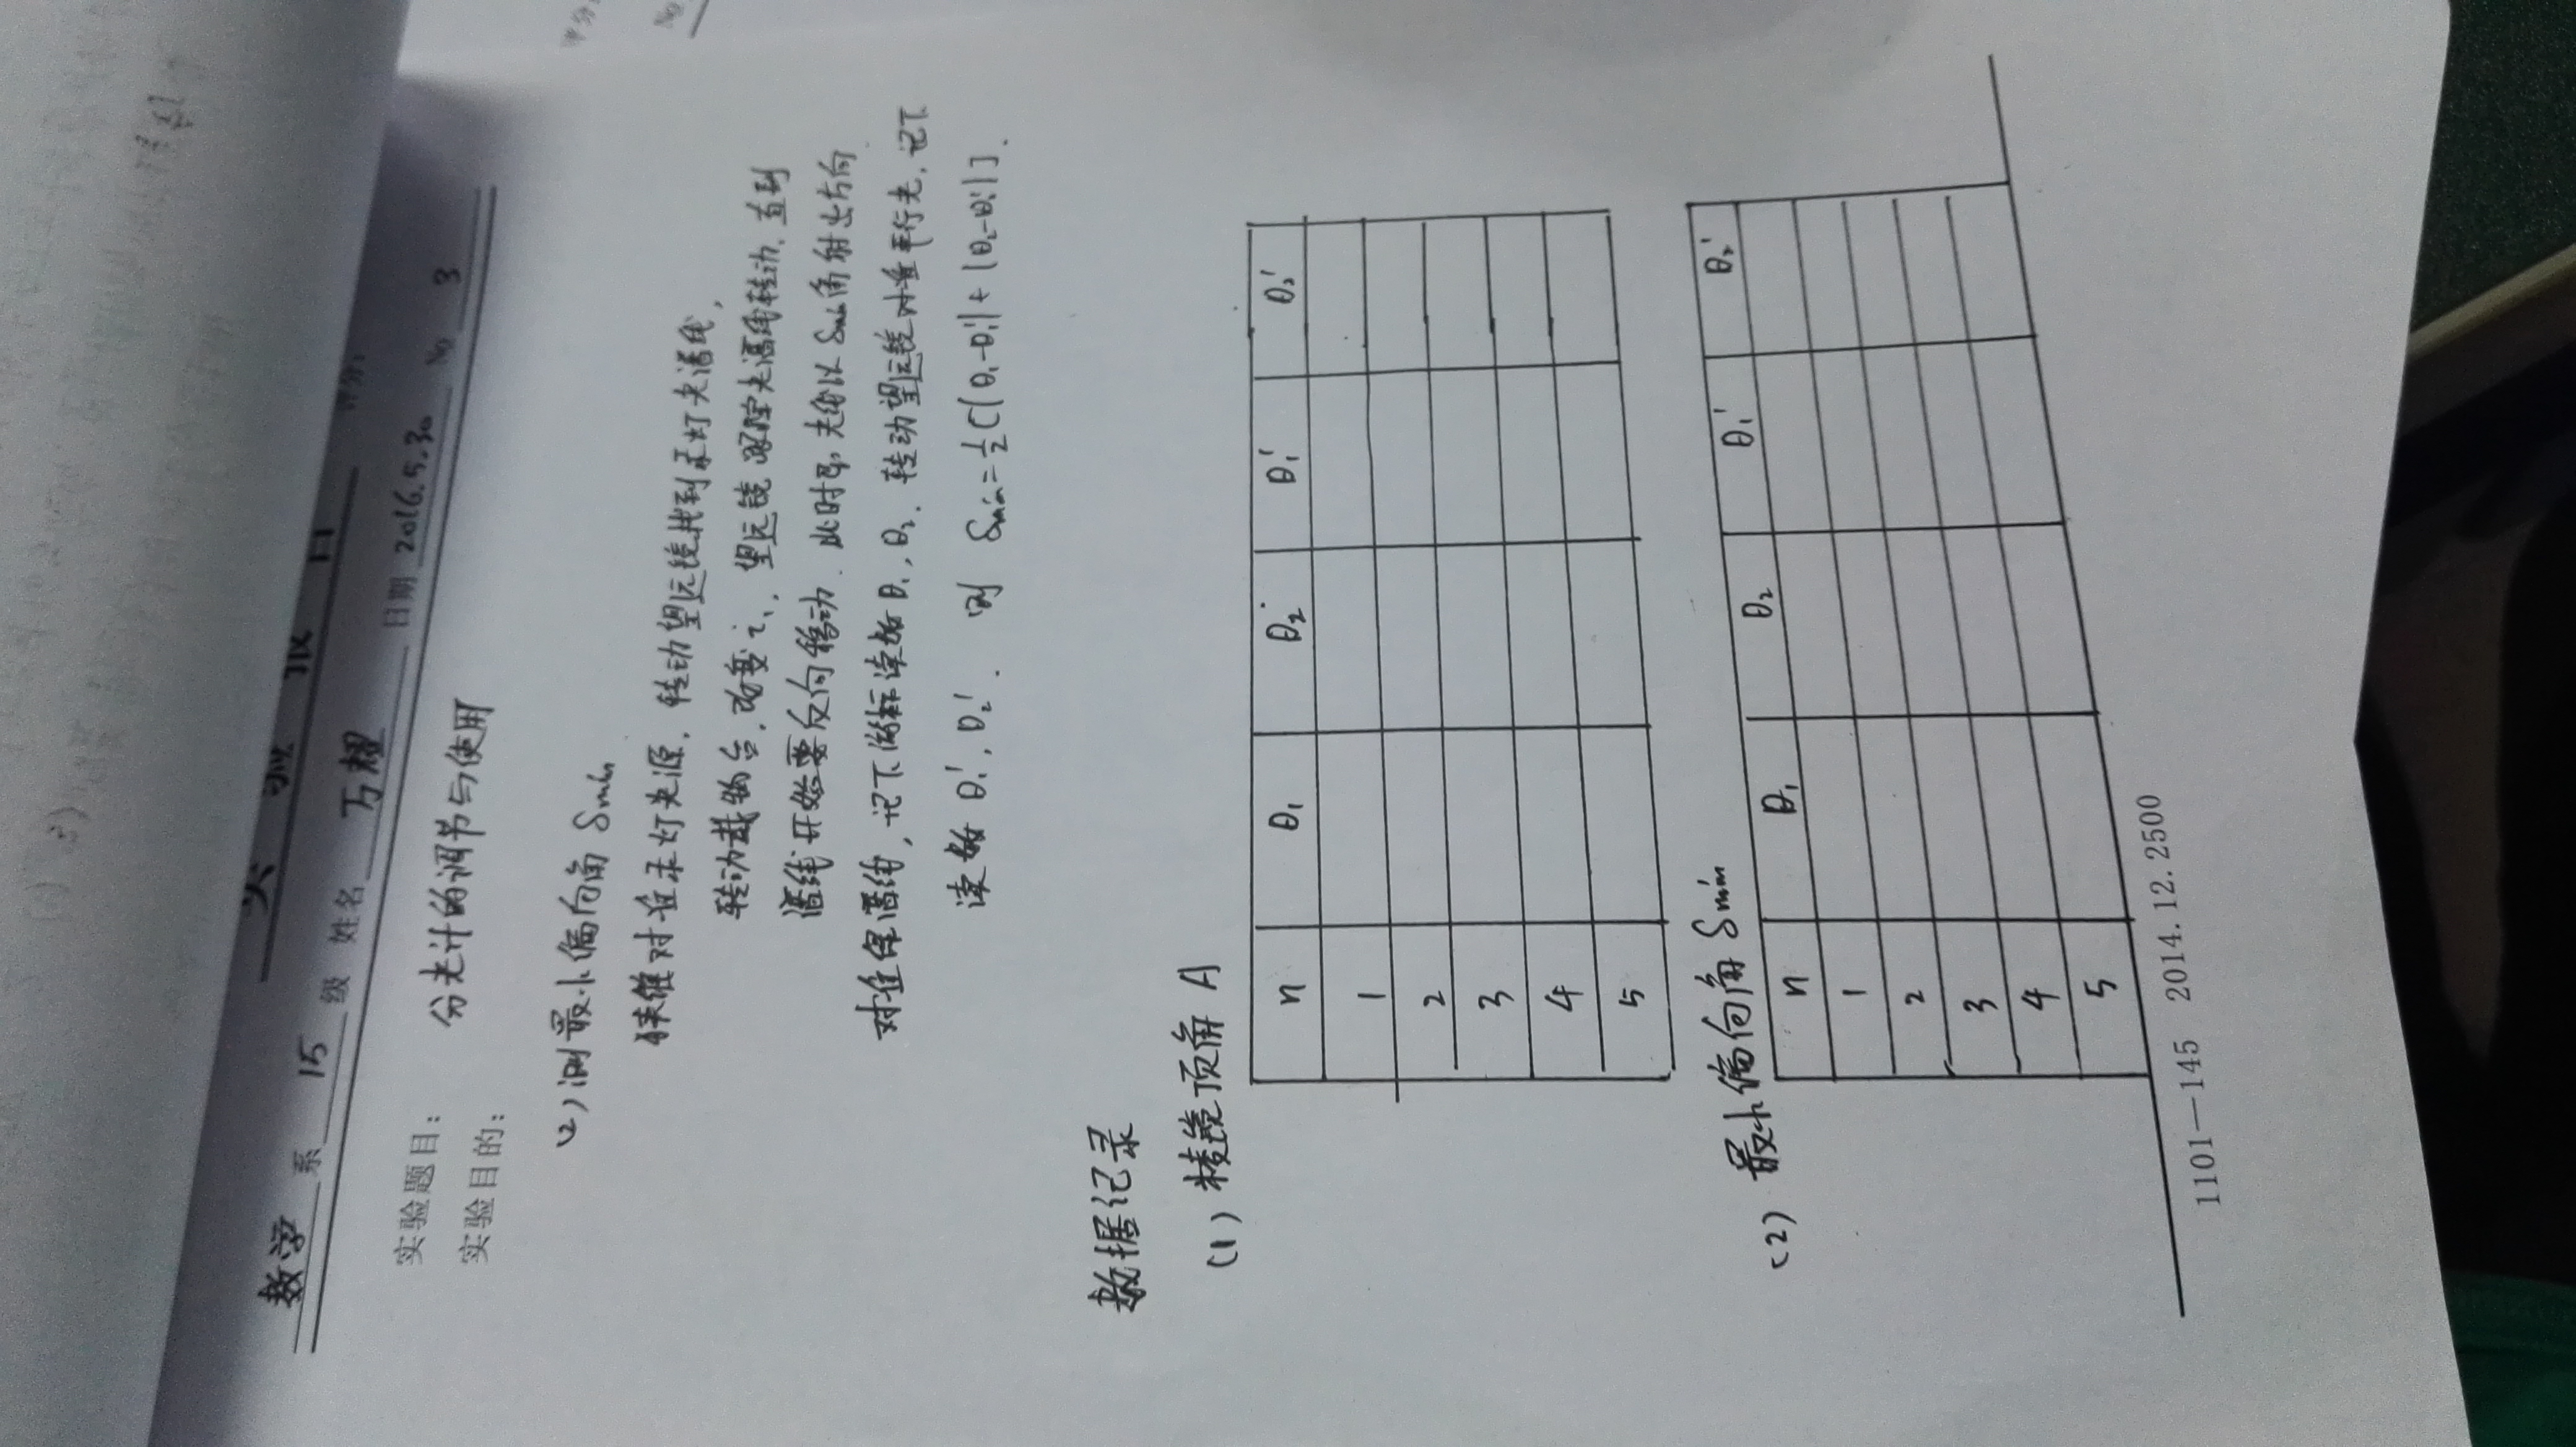 数学 系 15 级 姓名 万耀 日期 2016.5.30 No 3
实验题目： 分光计的调节与使用
实验目的：
(2) 测最小偏向角 δmin
狭缝对准汞灯光源，转动望远镜找到汞灯光谱线，
转动载物台，改变 i₁，望远镜跟踪光谱线转动，直到
谱线开始要反向移动．此时，光线以 δmin 角射出方向
对准绿谱线，记下游标读数 θ₁，θ₂．转动望远镜对准平行光，记下
读数 θ₁′，θ₂′． 则 δmin=½[|θ₁-θ₁′|+|θ₂-θ₂′|]．
数据记录
(1) 棱镜顶角 A
n θ₁ θ₂ θ₁′ θ₂′
1
2
3
4
5
(2) 最小偏向角 δmin
n θ₁ θ₂ θ₁′ θ₂′
1
2
3
4
5
1101—145 2014.12.2500